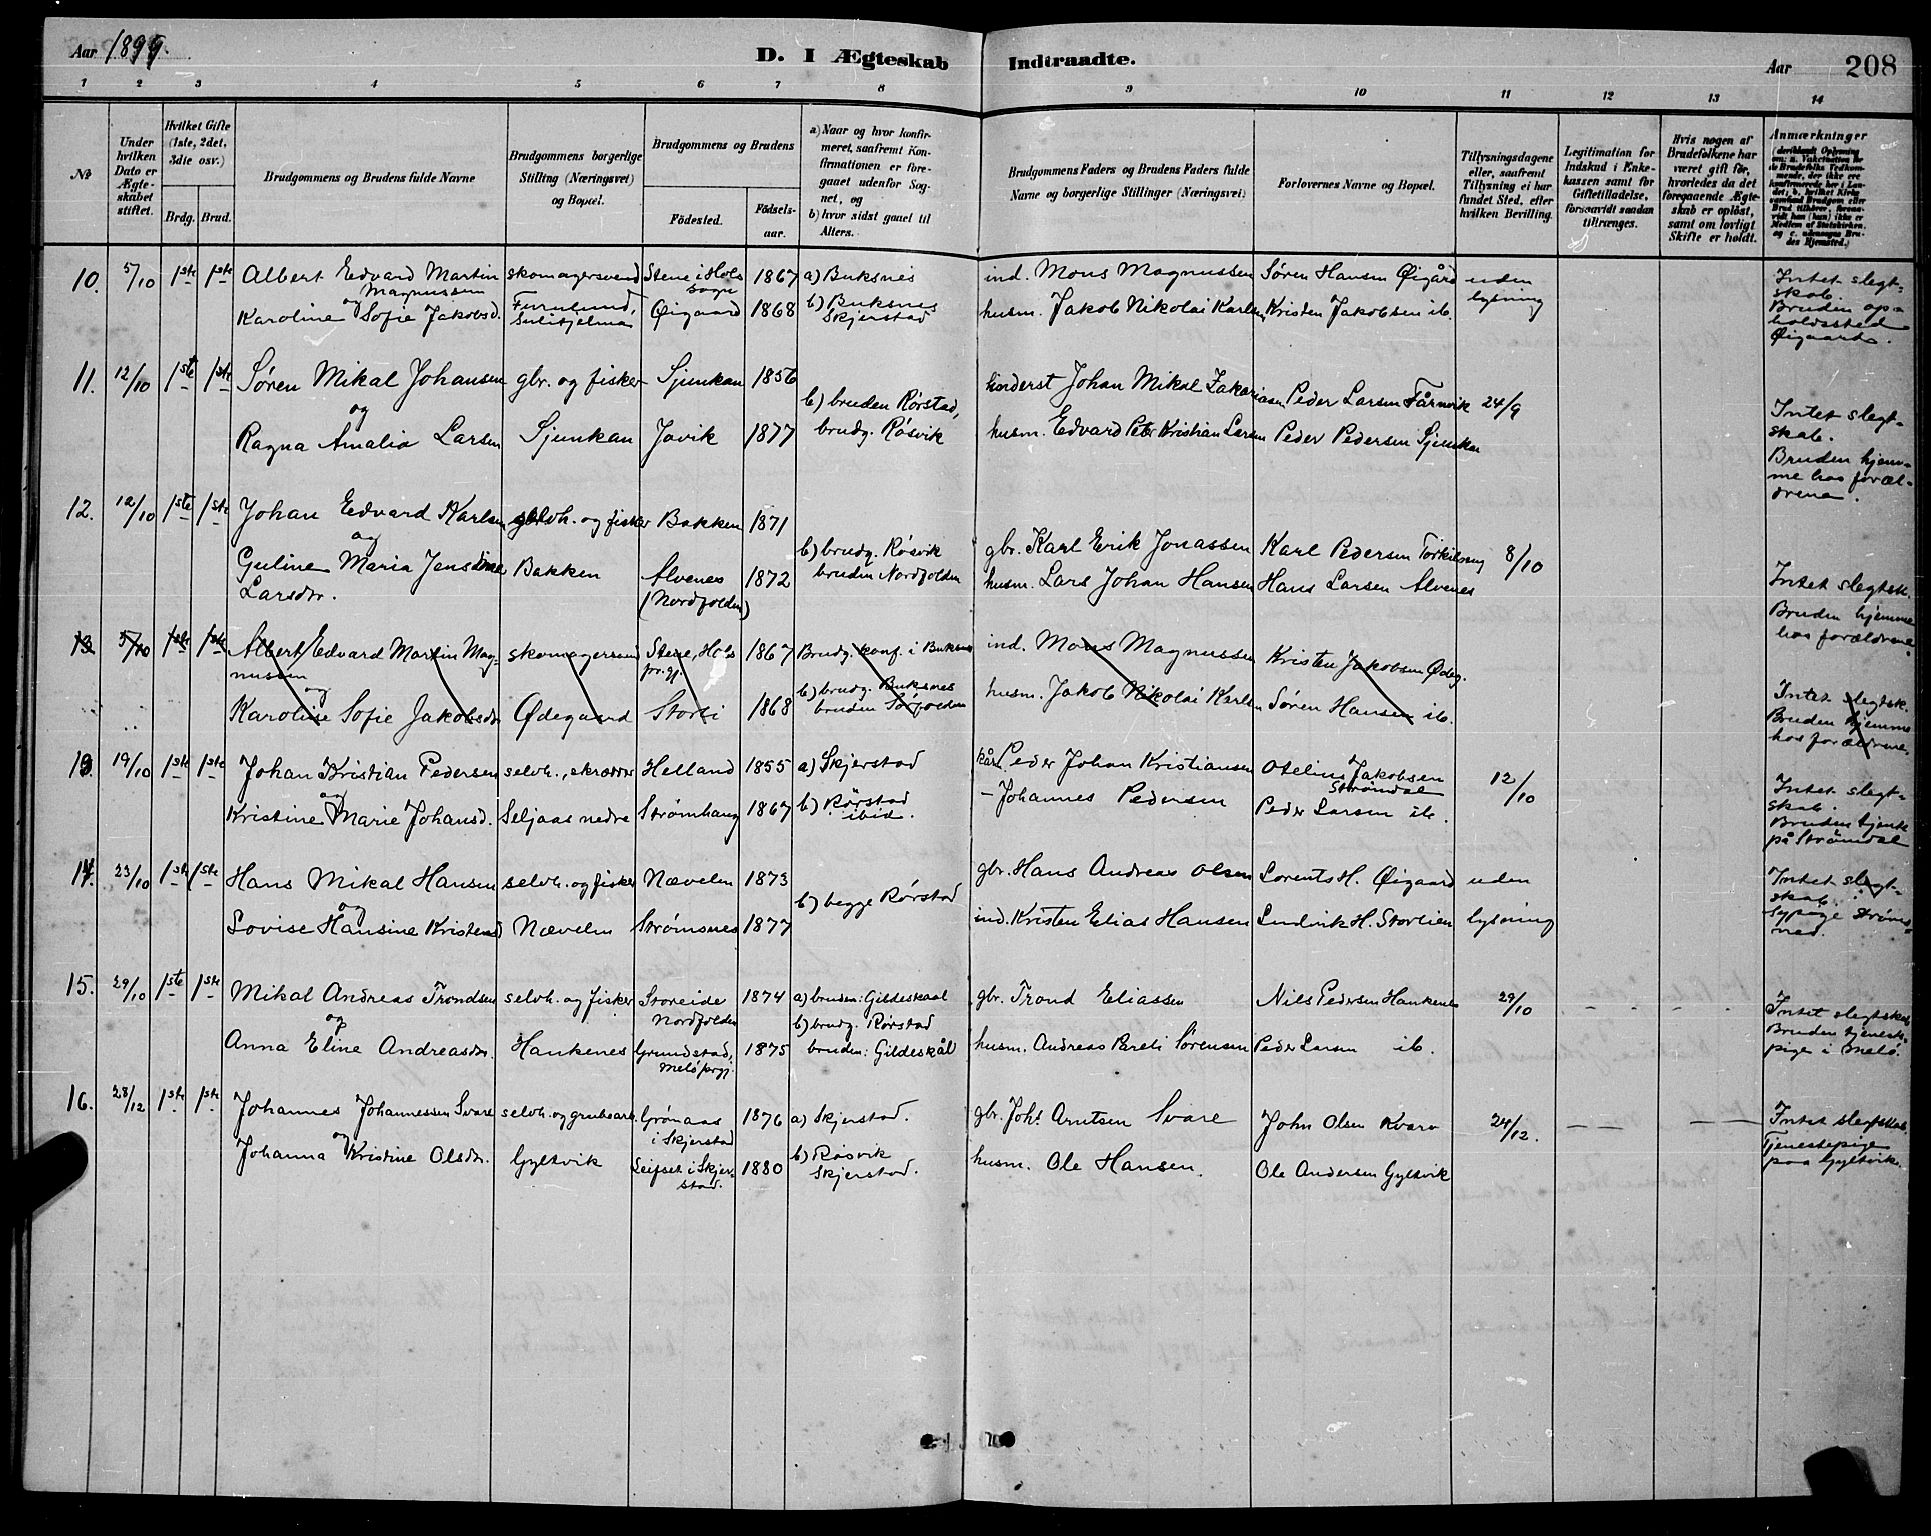 Aar 1899.
D. I Ægteskab Indtraadte.
Aar 208
1 2 3 4 5 6 7 8 9 10 11 12 13 14
No
Under hvilken Dato er Ægteskabet stiftet.
Hvilket Gifte (1ste, 2det, 3die osv.)
Brdg. Brud.
Brudgommens og Brudens fulde Navne
Brudgommens borgerlige Stilling (Næringsvei) og Bopæl.
Brudgommens og Brudens
Fødested. Fødselsaar.
a) Naar og hvor konfirmeret, saafremt Konfirmationen er foregaaet udenfor Sognet, og
b) hvor sidst gaaet til Alters.
Brudgommens Faders og Brudens Faders fulde Navne og borgerlige Stillinger (Næringsvei)
Forlovernes Navne og Bopæl.
Tillysningsdagene eller, saafremt Tillysning ei har fundet Sted, efter hvilken Bevilling.
Legitimation for Indskud i Enkekassen samt for Giftetilladelse, forsaavidt saadan tiltrænges.
Hvis nogen af Brudefolkene har været gift før, hvorledes da det foregaaende Ægteskab er opløst, samt om lovligt Skifte er holdt.
Anmærkninger
10. 5/10 1ste 1ste Albert Edvard Martin Magnussen skomagersvend Stene i Hols sogn 1867 a) Buksnes ind. Mons Magnussen Søren Hansen Øigård uden
og
Karoline Sofie Jakobsd. Furulund, Sulitjelma Øigaard 1868 b) Buksnes Skjerstad husm. Jakob Nikolai Karlsen Kristen Jakobsen ib. lysning
Intet slegtskab. Bruden opholdssted Øigaard.
11. 12/10 1ste 1ste Søren Mikal Johansen gbr. og fisker Sjunkan 1856 inderst Johan Mikal Zakariasen Peder Larsen Tårnvik 24/9
og b) bruden Rørstad,
Ragna Amalia Larsen Sjunkan Jovik 1877 brudg. Røsvik husm. Edvard Peter Kristian Larsen Peder Pedersen Sjunkan
Intet slegtskab. Bruden hjemme hos forældrene.
12. 12/10 1ste 1ste Johan Edvard Karlsen selvh. og fisker Bakken 1871
og b) brudg. Røsvik gbr. Karl Erik Jonassen Karl Pedersen 8/10
Guline Maria Jensine Larsdr. Bakken Alvenes (Nordfolden) 1872 bruden Nordfolden husm. Lars Johan Hansen Hans Larsen Alvenes
Intet slegtsk. Bruden hjemme hos forældrene.
13 5/10 1ste 1ste Albert Edvard Martin Magnussen skomagersvend Stene, Hols pr.gj. 1867 Brudg. konf. i Buksnes ind. Mons Magnussen Kristen Jakobsen Ødeg.
og
Karoline Sofie Jakobsdr. Ødegaard Storli 1868 b) brudg. Buksnes bruden Sørfolden husm. Jakob Nikolai Karlsen Søren Hansen ib.
Intet slegtsk. Bruden hjemme hos forældrene.
13. 19/10 1ste 1ste Johan Kristian Pedersen selvh., skrædder Helland 1855 a) Skjerstad kårm. Peder Johan Kristiansen Otelius Jakobsen Strømdal 12/10
og
Kristine Marie Johansd. Seljaas nedre Strømhaug 1867 b) Rørstad ibid. – Johannes Pedersen Peder Larsen ib.
Intet slegtskab. Bruden tjente på Strømdal
14. 23/10 1ste 1ste Hans Mikal Hansen selvh. og fisker Nævelen 1873 gbr. Hans Andreas Olsen Lorents H. Øigaard uden
og b) begge Rørstad
Lovise Hansine Kristensd Nævelen Strømsnes 1877 ind. Kristen Elias Hansen Ludvik H. Storlien lysning
Intet slegtskab. Sypige Strømsnes.
15. 29/10 1ste 1ste Mikal Andreas Trondsen selvh. og fisker Storeide Nordfolden 1874 a) bruden: Gildeskaal gbr. Trond Eliassen Nils Pedersen Hankenes 29/10
og b) brudg. Rørstad
Anna Eline Andreasdr. Hankenes Grundstad, Melö prgj. 1875 bruden: Gildeskål husm. Andreas Pareli Sørensen Peder Larsen ib.
Intet slegtskab Bruden tjenestepige i Melö.
16. 28/12 1ste 1ste Johannes Johannessen Svare selvh. og grubearb. Grønaas i Skjerstad 1876 a) Skjerstad. gbr. Johs Arntsen Svare John Olsen Kvarv 24/12.
og
Johanna Kristine Olsdr. Gyltvik Leifset i Skjerstad. 1880 b) Røsvik Skjerstad. husm. Ole Hansen Ole Andersen Gyltvik
Intet slegtskab. Tjenestepige paa Gyltvik.